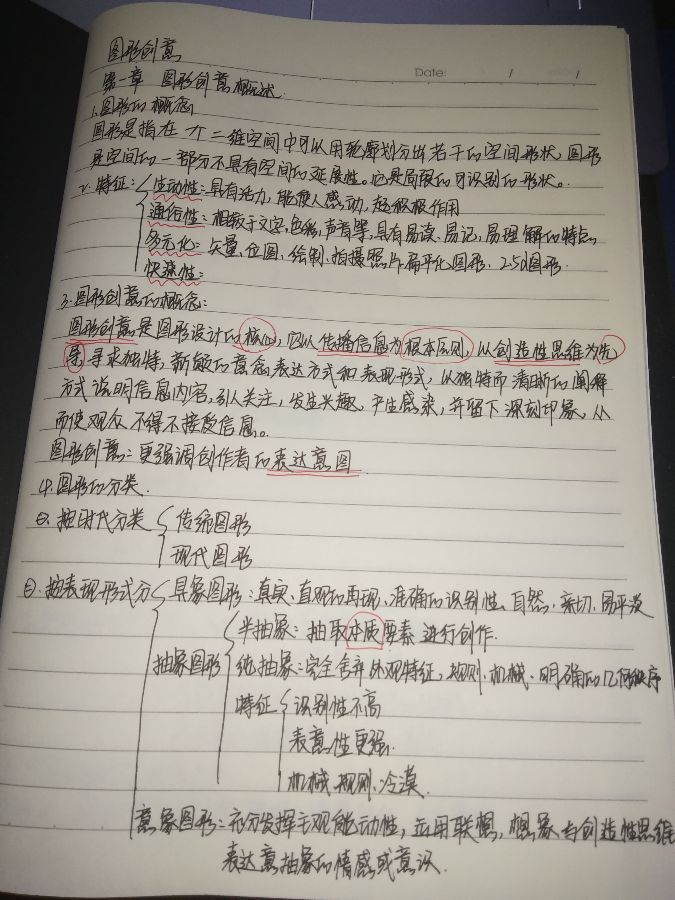 图形创意
Date: / /
第一章 图形创意概述
1.图形的概念
图形是指在一个二维空间中可以用轮廓划分出若干的空间形状,图形
是空间的一部分不具有空间的延展性。它是局限的可识别的形状。
2.特征: 生动性:具有活力,能使人感动,起积极作用
通俗性:相较于文字,色彩,声音等,具有易读、易记,易理解的特点
多元化:矢量,位图,绘制,拍摄照片,扁平化图形、2.5d图形.
快速性:
3.图形创意的概念:
图形创意是图形设计的核心,它以传播信息为根本原则,以创造性思维为先
导,寻求独特,新颖的意念,表达方式和表现形式,以独特而清晰的阐释
方式说明信息内容,引人关注,发生兴趣,产生感染,并留下深刻印象,从
而使观众不得不接受信息。
图形创意:更强调创作者的表达意图
4.图形的分类.
㊀.按时代分类 传统图形
现代图形
㊁.按表现形式分 具象图形:真实、直观的再现,准确的识别性、自然,亲切,易平淡
半抽象:抽取本质要素进行创作.
抽象图形 纯抽象:完全舍弃外观特征,规则、机械、明确的几何秩序
特征 识别性不高
表意性更强
机械,规则,冷漠.
意象图形:充分发挥主观能动性,运用联想,想象与创造性思维
表达意抽象的情感或意识.